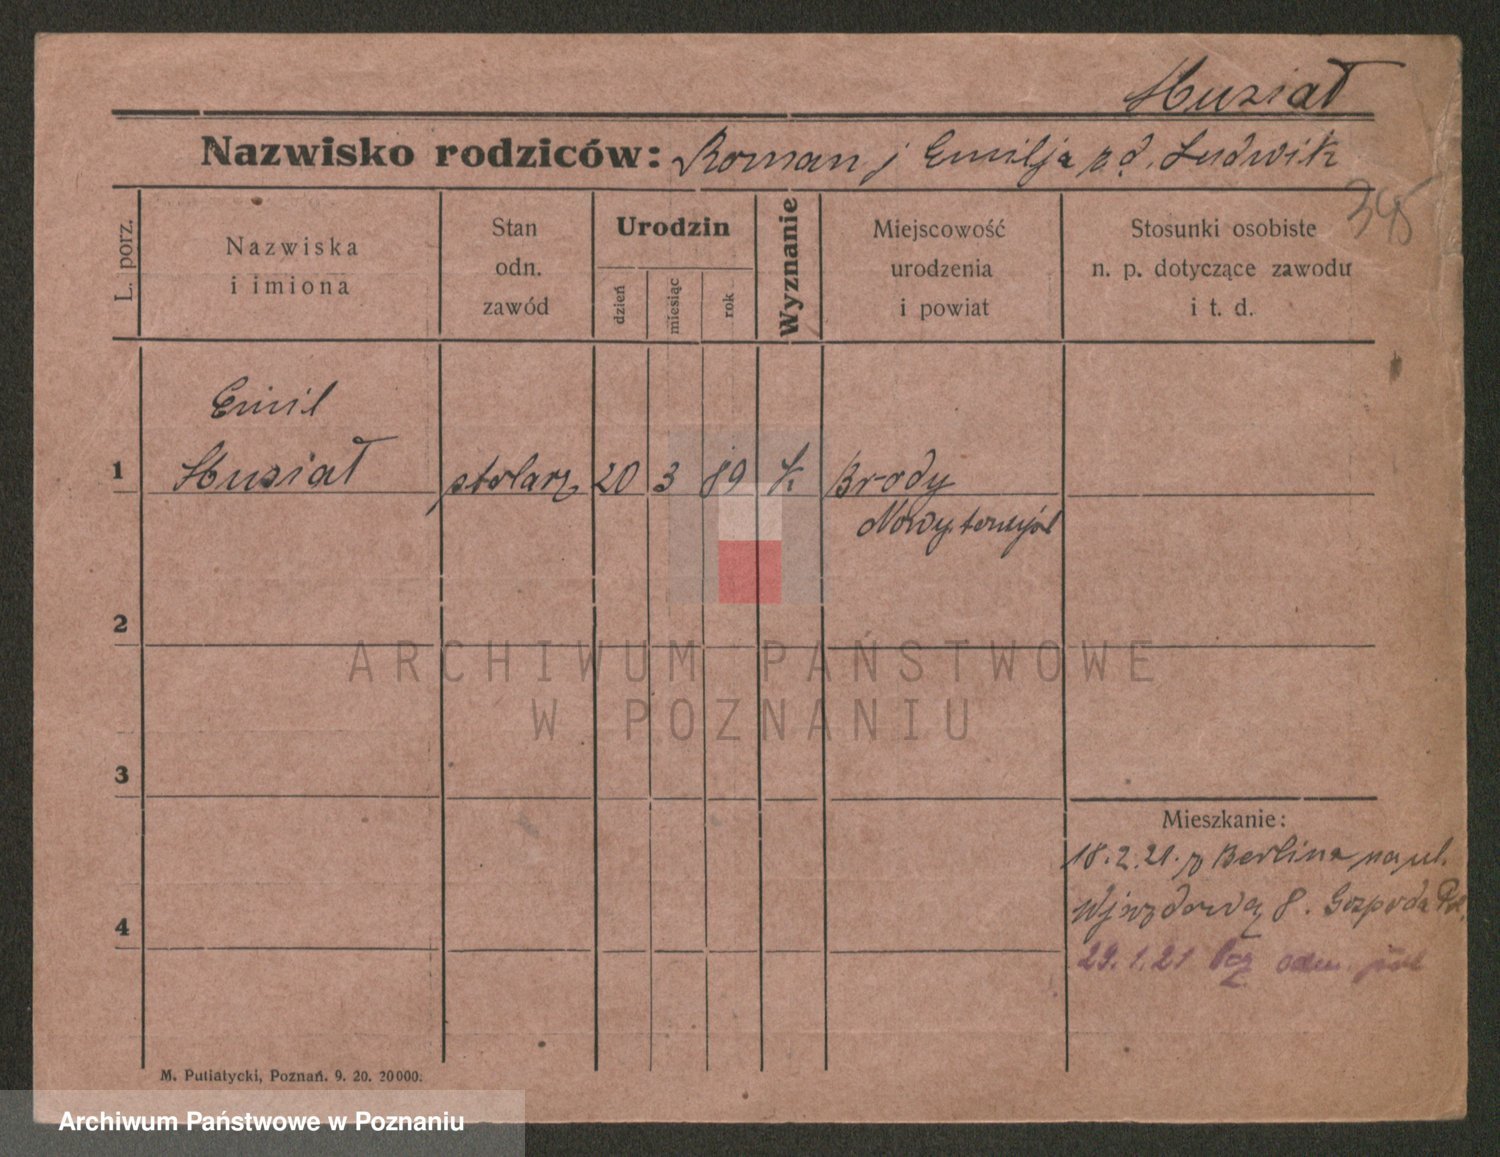 Musiał
Nazwisko rodziców: Roman j Emilja z d. Ludwik
L. porz.
Nazwiska
i imiona
Stan
odn.
zawód
Urodzin
dzień
miesiąc
rok
Wyznanie
Miejscowość
urodzenia
i powiat
Stosunki osobiste
n. p. dotyczące zawodu
i t. d.
Emil
1 Musiał stolarz 20 3 89 k Brody
Nowytomyśl
2
ARCHIWUM PAŃSTWOWE
W POZNANIU
3
Mieszkanie:
18.2.21. z Berlina na ul.
Wjazdową 8. Gospoda Pol.
4
29.1.21
M. Putiatycki, Poznań. 9. 20. 20000.
Archiwum Państwowe w Poznaniu